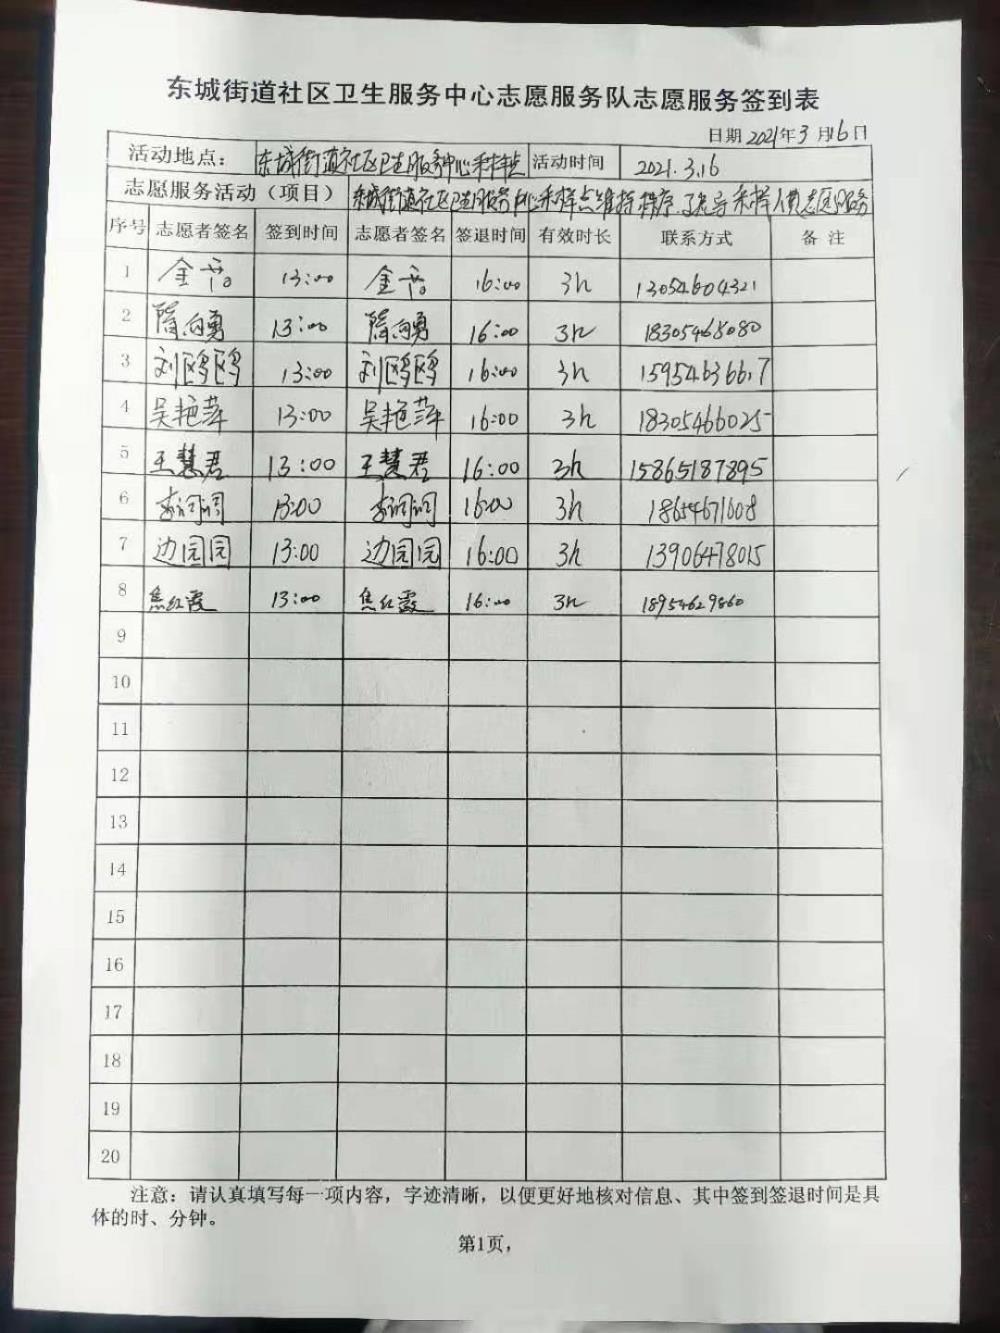 东城街道社区卫生服务中心志愿服务队志愿服务签到表
日期 2021年3月16日
活动地点： 东城街道社区卫生服务中心采样点 活动时间 2021.3.16
志愿服务活动（项目） 东城街道社区卫生服务中心采样点维持秩序 采样人员志愿服务
序号 志愿者签名 签到时间 志愿者签名 签退时间 有效时长 联系方式 备 注
1 13:00 16:00 3h 13054604321
2 隋向勇 13:00 隋向勇 16:00 3h 18305468080
3 刘鸥鸥 13:00 刘鸥鸥 16:00 3h 15954636617
4 吴艳萍 13:00 吴艳萍 16:00 3h 18305466025
5 王慧君 13:00 王慧君 16:00 3h 15865187895
6 李词词 13:00 李词词 16:00 3h 18654671608
7 边园园 13:00 边园园 16:00 3h 13906478015
8 焦红霞 13:00 焦红霞 16:00 3h 18954629860
9
10
11
12
13
14
15
16
17
18
19
20
注意：请认真填写每一项内容，字迹清晰，以便更好地核对信息、其中签到签退时间是具
体的时、分钟。
第1页，